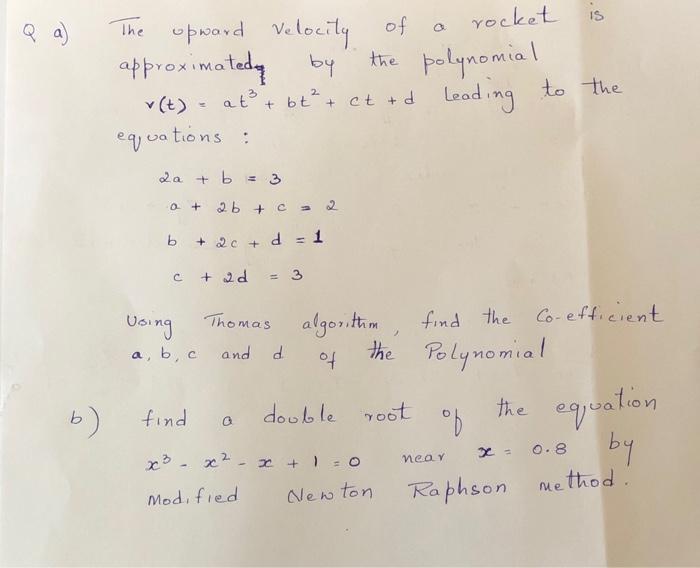 Q a) The upward velocity of a rocket is
approximated by the polynomial
v(t) = at³ + bt² + ct + d leading to the
equations :
2a + b = 3
a + 2b + c = 2
b + 2c + d = 1
c + 2d = 3
Using Thomas algorithm, find the Co-efficient
a, b, c and d of the Polynomial
b) find a double root of the equation
x³ - x² - x + 1 = 0 near x = 0.8 by
Modified Newton Raphson method.